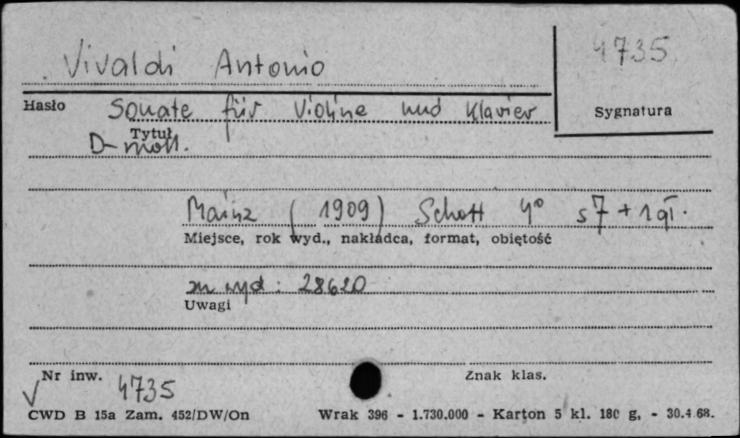 Vivaldi Antonio
4735
Hasło
Sonate für Violine und Klavier
Sygnatura
Tytuł
D-moll.
Mainz (1909) Schott 4° s 7 + 1 gł.
Miejsce, rok wyd., nakładca, format, obiętość
nr wyd: 28620
Uwagi
Nr inw. 4735
Znak klas.
CWD B 15a Zam. 452/DW/On
Wrak 396 - 1.730.000 - Karton 5 kl. 180 g, - 30.4.68.